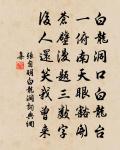 白龍洞口白龍台
一南天眼豁開
蒼壁漫題三數字
後人還笑我曾來
張自明白龍洞